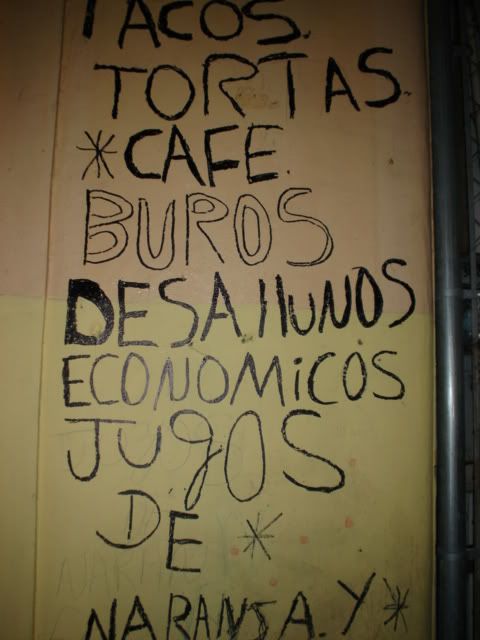 TACOS.
TORTAS.
*CAFE.
BUROS
DESAllUNOS
ECONOMiCOS
JUgOS
DE *
NARANJA.Y*